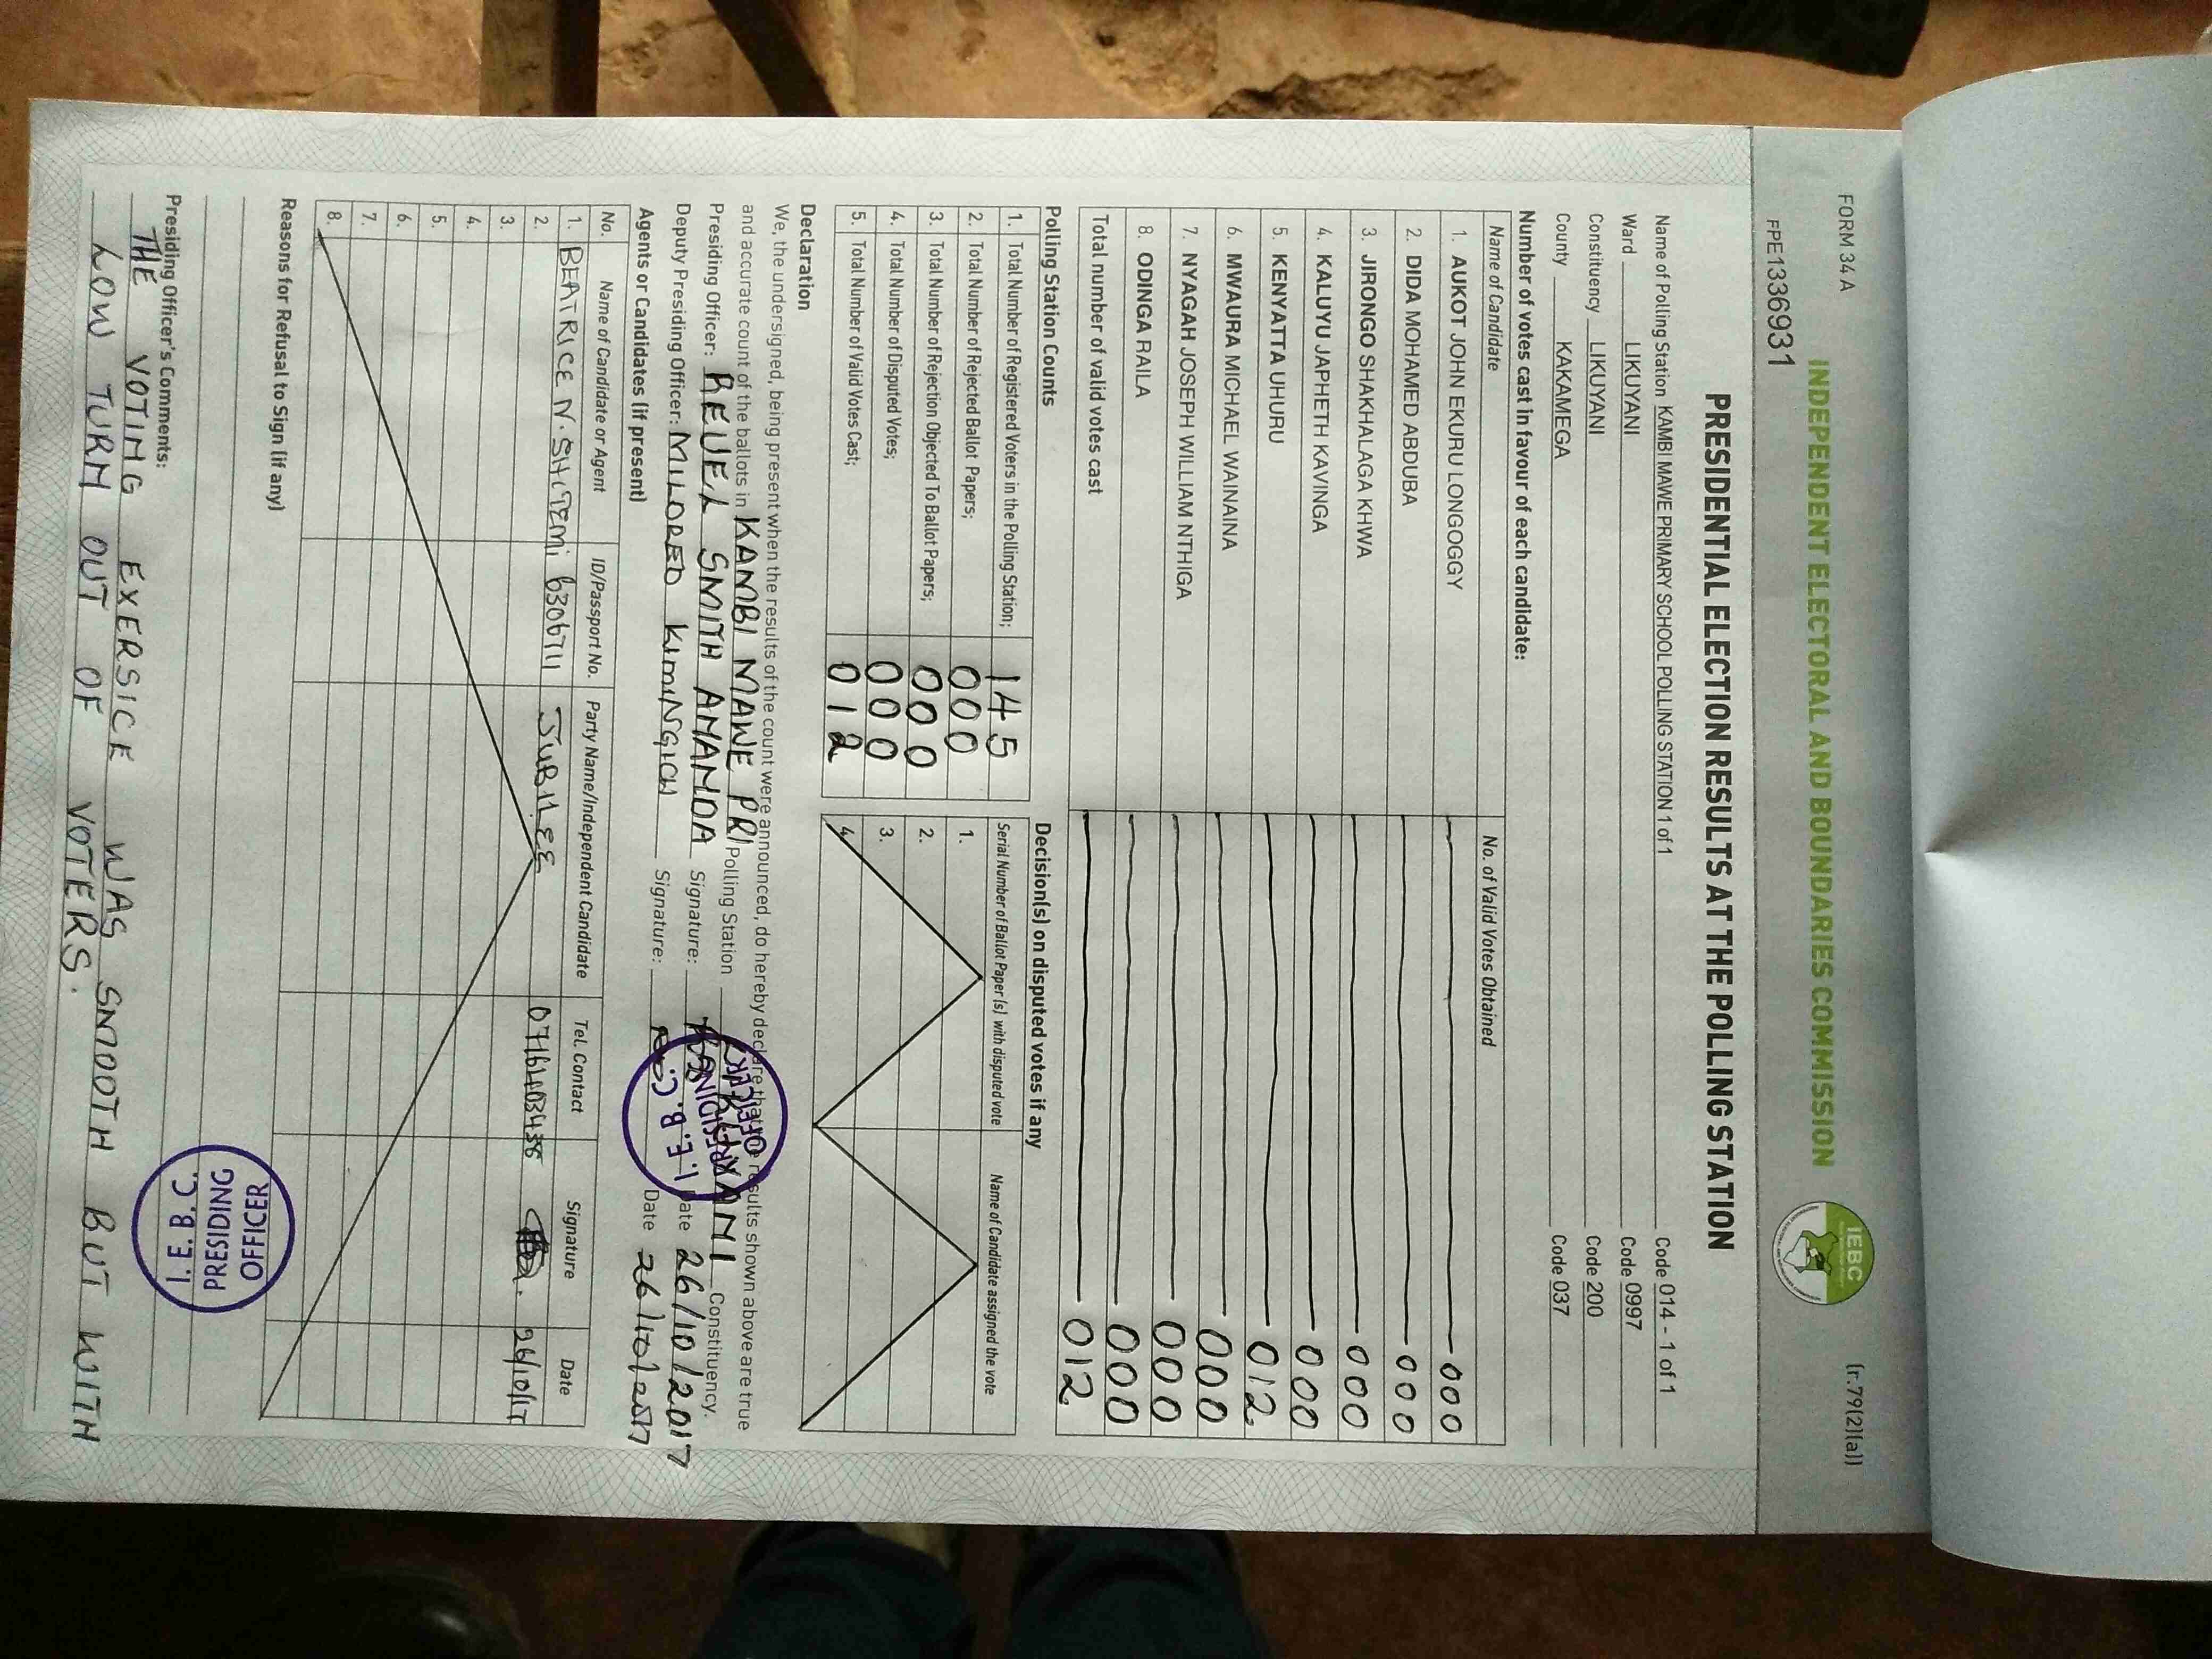 FORM 34 A
(r.79(2)(a))
INDEPENDENT ELECTORAL AND BOUNDARIES COMMISSION
IEBC
FPE1336931
PRESIDENTIAL ELECTION RESULTS AT THE POLLING STATION
Name of Polling Station KAMBI MAWE PRIMARY SCHOOL POLLING STATION 1 of 1 Code 014 - 1 of 1
Ward LIKUYANI Code 0997
Constituency LIKUYANI Code 200
County KAKAMEGA Code 037
Number of votes cast in favour of each candidate:
Name of Candidate No. of Valid Votes Obtained
1. AUKOT JOHN EKURU LONGOGGY 000
2. DIDA MOHAMED ABDUBA 000
3. JIRONGO SHAKHALAGA KHWA 000
4. KALUYU JAPHETH KAVINGA 000
5. KENYATTA UHURU 012
6. MWAURA MICHAEL WAINAINA 000
7. NYAGAH JOSEPH WILLIAM NTHIGA 000
8. ODINGA RAILA 000
Total number of valid votes cast 012
Polling Station Counts
1. Total Number of Registered Voters in the Polling Station; 145
2. Total Number of Rejected Ballot Papers; 000
3. Total Number of Rejection Objected To Ballot Papers; 000
4. Total Number of Disputed Votes; 000
5. Total Number of Valid Votes Cast; 012
Decision(s) on disputed votes if any
Serial Number of Ballot Paper (s) with disputed vote Name of Candidate assigned the vote
1.
2.
3.
4.
Declaration
We, the undersigned, being present when the results of the count were announced, do hereby declare that the results shown above are true
and accurate count of the ballots in KAMBI MAWE PRI Polling Station LIKUYANI Constituency.
Presiding Officer: REUEL SMITH AMANDA Signature: Date 26/10/2017
Deputy Presiding Officer: MILDRED KIMINGICH Signature: Date 26/10/2017
PRESIDING OFFICER
I. E. B. C.
Agents or Candidates (if present)
No. Name of Candidate or Agent ID/Passport No. Party Name/Independent Candidate Tel. Contact Signature Date
1. BEATRICE N. JUBILEE 26/10/17
2.
3.
4.
5.
6.
7.
8.
Reasons for Refusal to Sign (if any)
OFFICER
PRESIDING
I. E. B. C.
Presiding Officer's Comments:
THE VOTING EXERSICE WAS SMOOTH BUT WITH
LOW TURN OUT OF VOTERS.